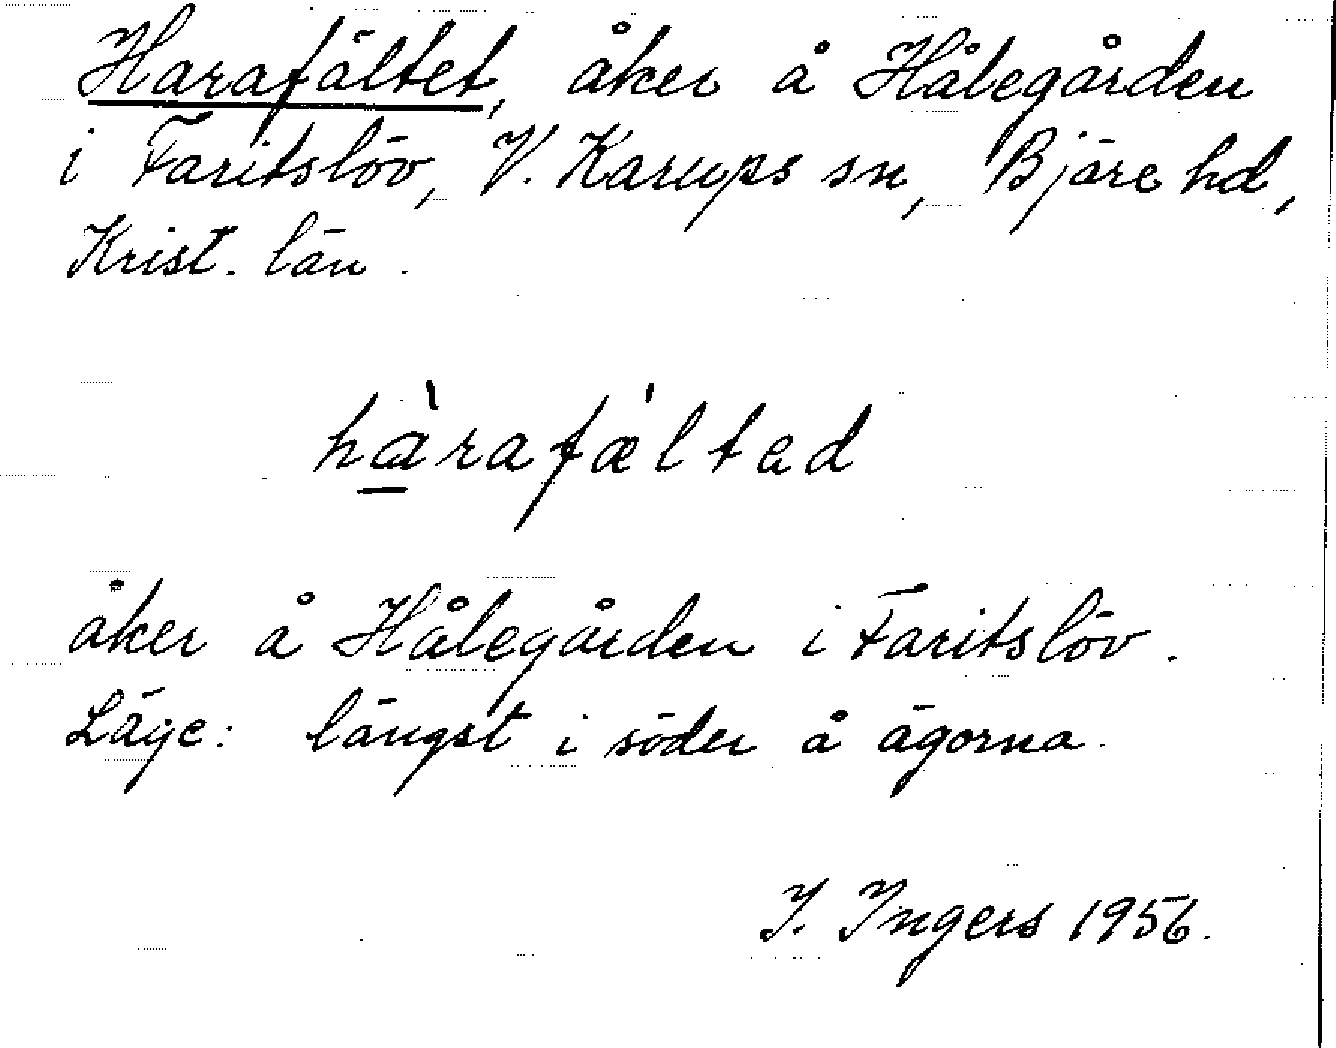 Harafältet, åker å Hålegården
i Faritslöv, V. Karups sn, Bjäre hd,
Krist. län.
hàrafæ̀ltad
åker å Hålegården i Faritslöv.
Läge: längst i söder å ägorna.
I. Ingers 1956.